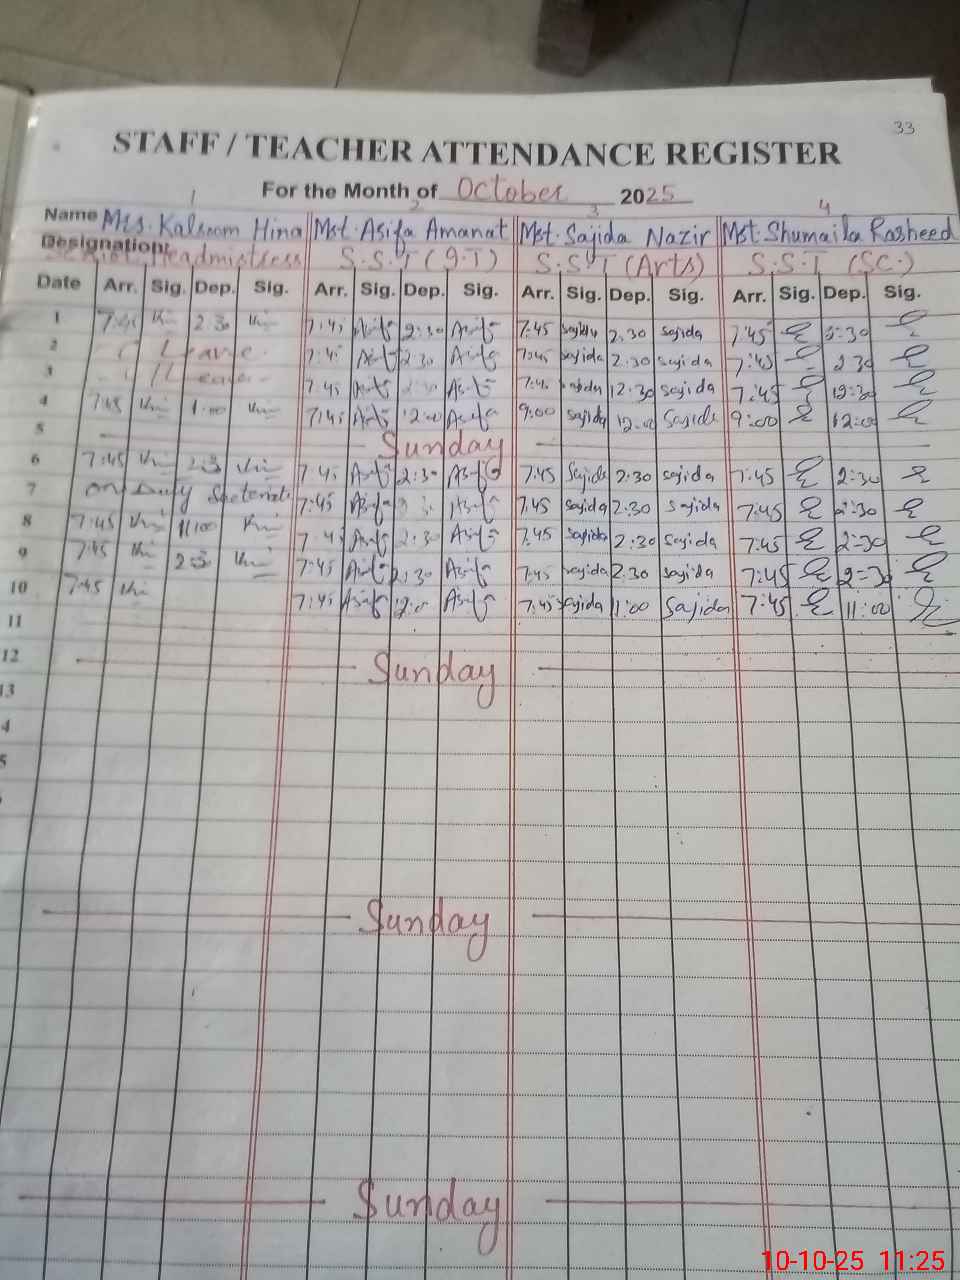 33
STAFF / TEACHER ATTENDANCE REGISTER
For the Month of October 2025
1 2 3 4
Name Mrs. Kalsoom Hina Mst. Asifa Amanat Mst. Sajida Nazir Mst. Shumaila Rasheed
Designation: Headmistress S.S.T (I.T) S.S.T (Arts) S.S.T (SC.)
Date Arr. Sig. Dep. Sig. Arr. Sig. Dep. Sig. Arr. Sig. Dep. Sig. Arr. Sig. Dep. Sig.
1 7:45 2:30 7:45 Asifa 2:30 Asifa 7:45 sajida 2:30 sajida 7:45 2:30
2 C/Leave 7:45 Asifa 2:30 Asifa 7:45 sajida 2:30 sajida 7:45 2:30
3 C/Leave 7:45 Asifa Asifa 7:45 sajida 12:30 sajida 7:45 12:30
4 7:45 1:00 7:45 Asifa 12:00 Asifa 9:00 sajida 12:00 Sajida 9:00 12:00
5 Sunday
6 7:45 2:30 7:45 Asifa 2:30 Asifa 7:45 Sajida 2:30 sajida 7:45 2:30
7 on Duty 7:45 Asifa Asifa 7:45 sajida 2:30 sajida 7:45 2:30
8 7:45 11:00 7:45 Asifa 2:30 Asifa 7:45 sajida 2:30 sajida 7:45 2:30
9 7:45 2:30 7:45 Asifa 2:30 Asifa 7:45 sajida 2:30 sajida 7:45 2=30
10 7:45 7:45 Asifa Asifa 7:45 sajida 11:00 Sajida 7:45 11:00
11
12 Sunday
13
4
5
Sunday
Sunday
10-10-25 11:25